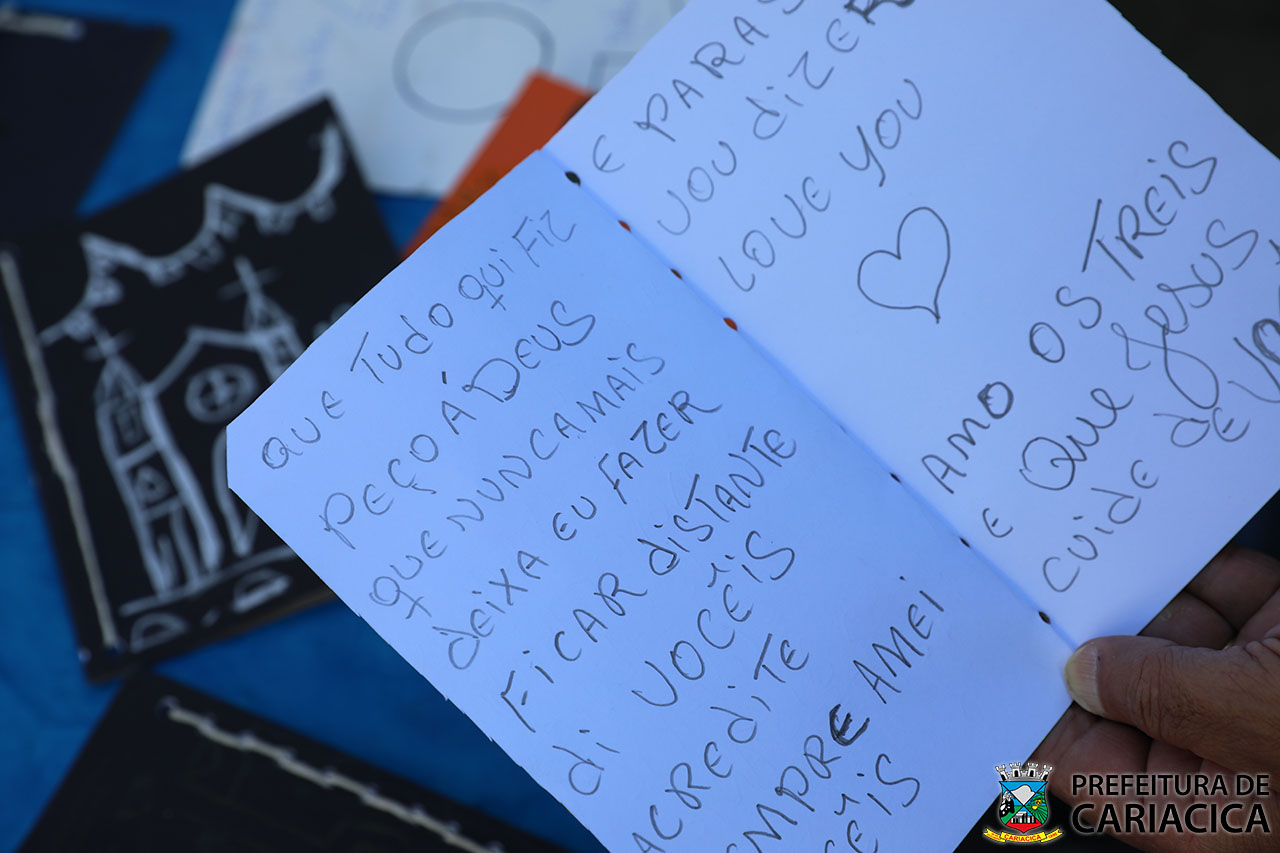 QUE TUDO qUi FiZ
PEÇO Á DEUS
qUE NUNCAMAiS
dEiXA EU FAZER
FiCAR diSTANTE
di VOCÊiS
ACREdiTE
EMPRE AMEi
E PARA
VOU diZER
LOVE YOU
AMO OS TREiS
E QUE JESUS
CUidE dE
PREFEITURA DE
CARIACICA
CARIACICA